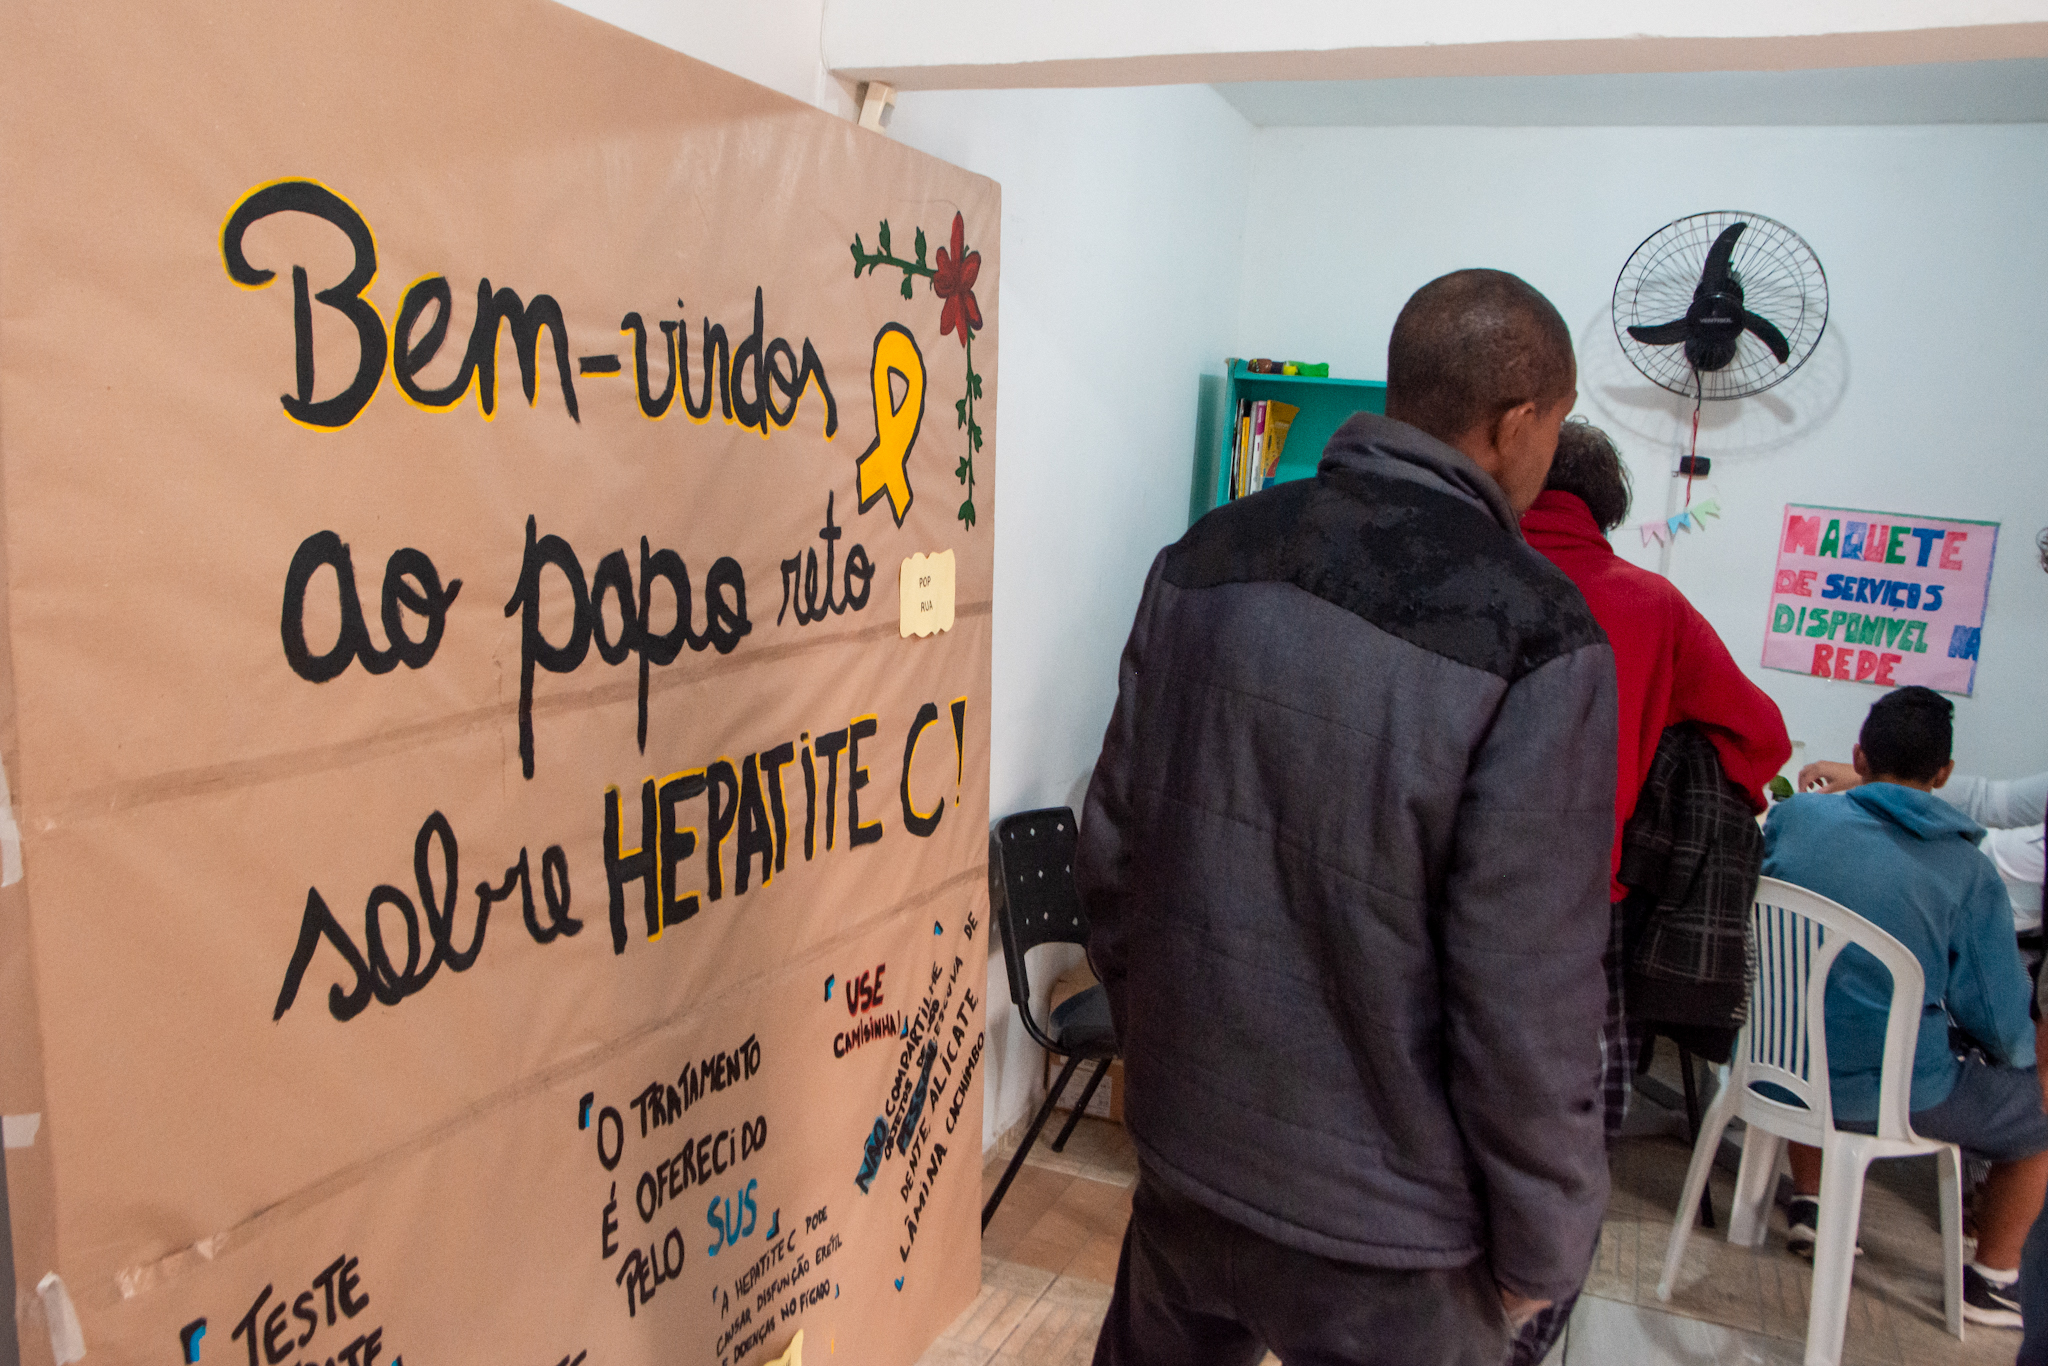 Bem-vindos
ao papo reto
POP
RUA
sobre HEPATITE C!
"USE
CAMISINHA!"
"NÃO COMPARTILHE
OBJETOS DE USO
PESSOAL ESCOVA DE
DENTE ALICATE
LÂMINA CACHIMBO
"O TRATAMENTO
É OFERECIDO
PELO SUS"
"A HEPATITE C PODE
CAUSAR DISFUNÇÃO ERÉTIL
E DOENÇAS NO FÍGADO"
"TESTE
MAQUETE
DE SERVIÇOS
DISPONIVEL NA
REDE